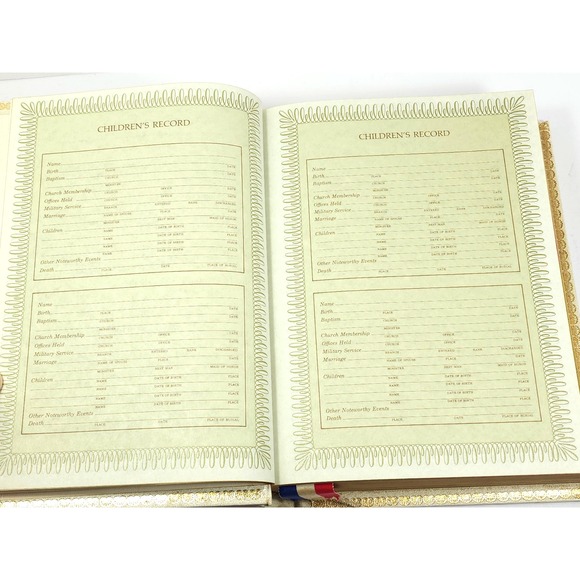 CHILDREN'S RECORD
Name
DATE
Birth
PLACE DATE
Baptism
CHURCH DATE
MINISTER
Church Membership
CHURCH OFFICE DATE
Offices Held
CHURCH OFFICE DATE
Military Service
BRANCH ENTERED RANK DISCHARGED
Marriage
NAME OF SPOUSE PLACE DATE
MINISTER BEST MAN MAID OF HONOR
Children
NAME DATE OF BIRTH PLACE
NAME DATE OF BIRTH PLACE
NAME DATE OF BIRTH PLACE
NAME DATE OF BIRTH PLACE
Other Noteworthy Events
Death
PLACE DATE PLACE OF BURIAL
Name
DATE
Birth
PLACE DATE
Baptism
CHURCH DATE
MINISTER
Church Membership
CHURCH OFFICE DATE
Offices Held
CHURCH OFFICE DATE
Military Service
BRANCH ENTERED RANK DISCHARGED
Marriage
NAME OF SPOUSE PLACE DATE
MINISTER BEST MAN MAID OF HONOR
Children
NAME DATE OF BIRTH PLACE
NAME DATE OF BIRTH PLACE
NAME DATE OF BIRTH PLACE
NAME DATE OF BIRTH PLACE
Other Noteworthy Events
Death
PLACE DATE PLACE OF BURIAL
CHILDREN'S RECORD
Name
DATE
Birth
PLACE DATE
Baptism
CHURCH DATE
MINISTER
Church Membership
CHURCH OFFICE DATE
Offices Held
CHURCH OFFICE DATE
Military Service
BRANCH ENTERED RANK DISCHARGED
Marriage
NAME OF SPOUSE PLACE DATE
MINISTER BEST MAN MAID OF HONOR
Children
NAME DATE OF BIRTH PLACE
NAME DATE OF BIRTH PLACE
NAME DATE OF BIRTH PLACE
NAME DATE OF BIRTH PLACE
Other Noteworthy Events
Death
PLACE DATE PLACE OF BURIAL
Name
DATE
Birth
PLACE DATE
Baptism
CHURCH DATE
MINISTER
Church Membership
CHURCH OFFICE DATE
Offices Held
CHURCH OFFICE DATE
Military Service
BRANCH ENTERED RANK DISCHARGED
Marriage
NAME OF SPOUSE PLACE DATE
MINISTER BEST MAN MAID OF HONOR
Children
NAME DATE OF BIRTH PLACE
NAME DATE OF BIRTH PLACE
NAME DATE OF BIRTH PLACE
NAME DATE OF BIRTH PLACE
Other Noteworthy Events
Death
PLACE DATE PLACE OF BURIAL